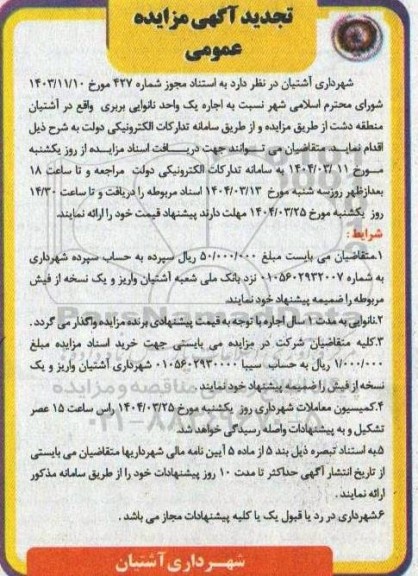 تجدید آگهی مزایده
عمومی
شهرداری آشتیان در نظر دارد به استناد مجوز شماره ۴۲۷ مورخ ۱۴۰۳/۱۱/۱۰
شورای محترم اسلامی شهر نسبت به اجاره یک واحد نانوایی بربری واقع در آشتیان
منطقه دشت از طریق مزایده و از طریق سامانه تدارکات الکترونیکی دولت به شرح ذیل
اقدام نماید. متقاضیان می توانند جهت دریافت اسناد مزایده از روز یکشنبه
مورخ ۱۴۰۴/۰۳/۱۱ به سامانه تدارکات الکترونیکی دولت مراجعه و تا ساعت ۱۸
بعدازظهر روزسه شنبه مورخ ۱۴۰۴/۰۳/۱۳ اسناد مربوطه را دریافت و تا ساعت ۱۴/۳۰
روز یکشنبه مورخ ۱۴۰۴/۰۳/۲۵ مهلت دارند پیشنهاد قیمت خود را ارائه نمایند.
شرایط :
۱.متقاضیان می بایست مبلغ ۵۰/۰۰۰/۰۰۰ ریال سپرده به حساب سپرده شهرداری
به شماره ۰۱۰۵۶۰۲۹۳۲۰۰۷ نزد بانک ملی شعبه آشتیان واریز و یک نسخه از فیش
مربوطه را ضمیمه پیشنهاد خود نمایند.
۲.نانوایی به مدت ۱ سال اجاره با توجه به قیمت پیشنهادی برنده مزایده واگذار می گردد .
۳.کلیه متقاضیان شرکت در مزایده می بایستی جهت خرید اسناد مزایده مبلغ
۱/۰۰۰/۰۰۰ ریال به حساب سیبا ۰۱۰۵۶۰۲۹۳۰۰۰۰ شهرداری آشتیان واریز و یک
نسخه از فیش را ضمیمه پیشنهاد خود نمایند .
۴.کمیسیون معاملات شهرداری روز یکشنبه مورخ ۱۴۰۴/۰۳/۲۵ راس ساعت ۱۵ عصر
تشکیل و به پیشنهادات واصله رسیدگی خواهد شد.
۵.به استناد تبصره ذیل بند ۵ از ماده ۵ آیین نامه مالی شهرداریها متقاضیان می بایستی
از تاریخ انتشار آگهی حداکثر تا مدت ۱۰ روز پیشنهادات خود را از طریق سامانه مذکور
ارائه نمایند .
۶.شهرداری در رد یا قبول یک یا کلیه پیشنهادات مجاز می باشد .
شهرداری آشتیان
ParsNamadData